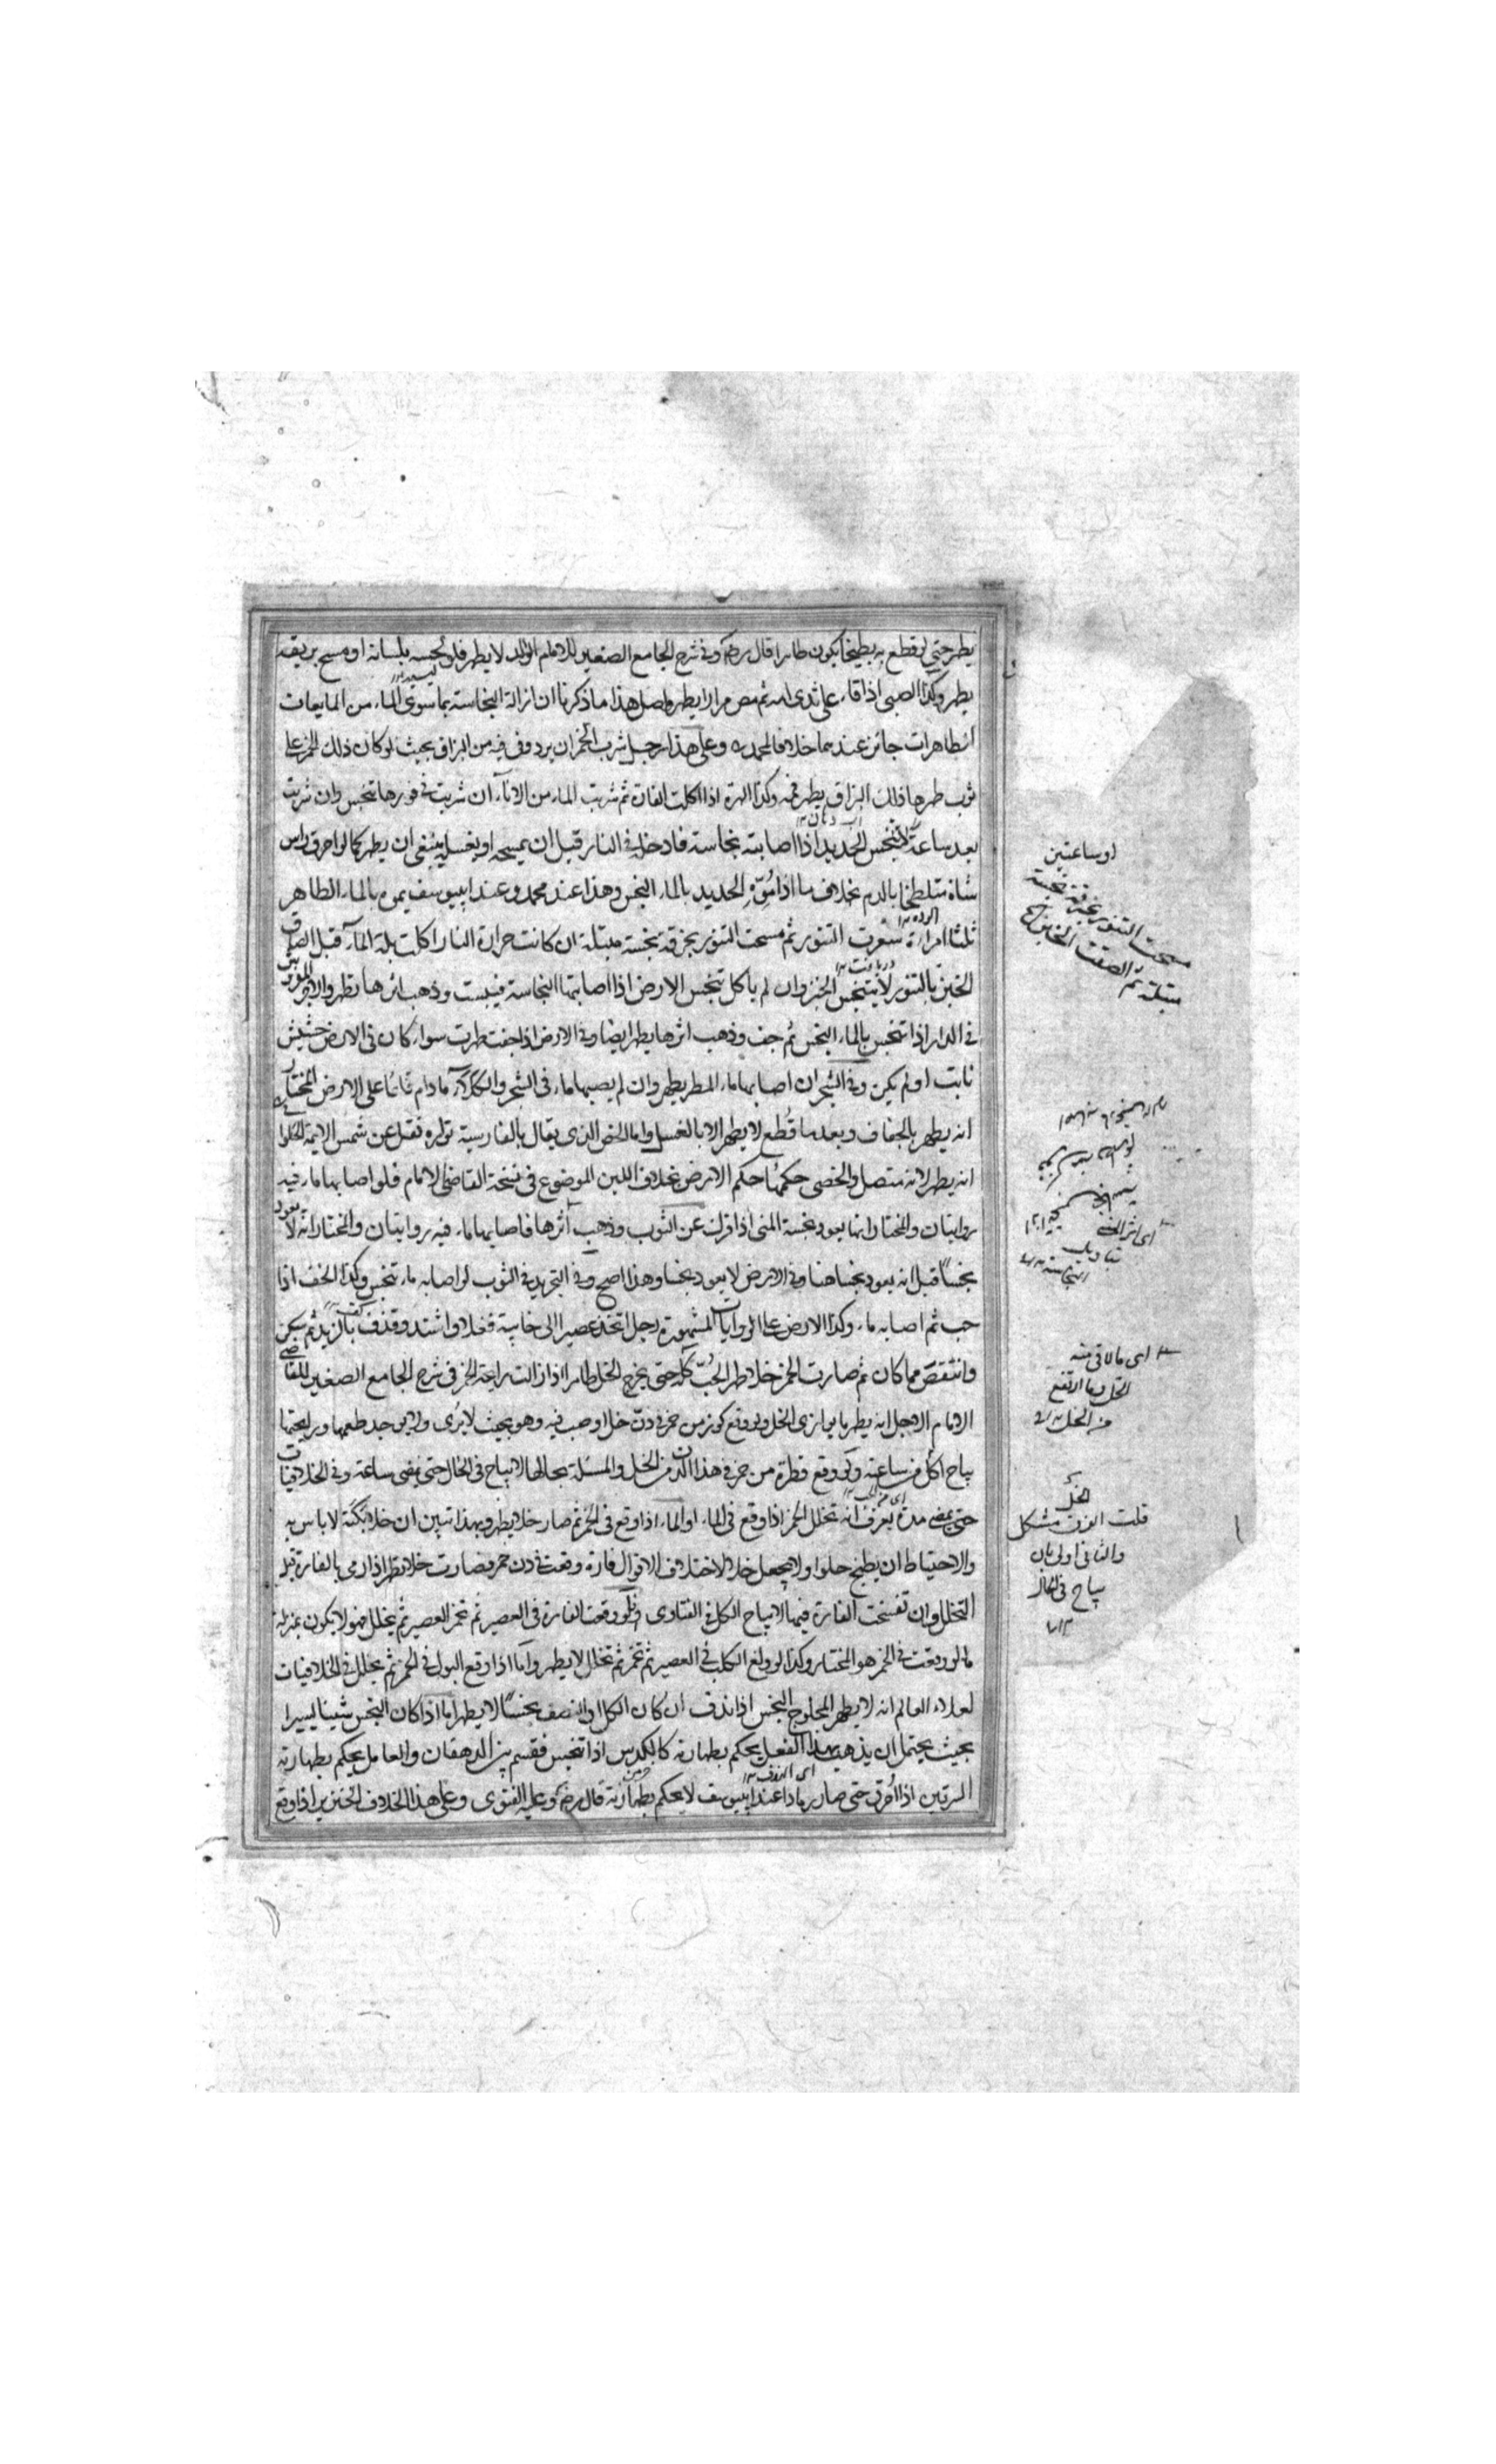 يطهر حتى لو قطع به بطيخا يكون طاهرا قال رضه وفى شرح الجامع الصغير للامام الوالد لا يطهر فلو لحسه بلسانه او مسح بريقه
يطهر وكذا الصبى اذا قاء على ثدى امه ثم مص مرارا يطهر واصل هذا ما ذكرنا ان ازالة النجاسة بما سوى الماء من المايعات
الطاهرات جائز عندهما خلافا لمحمد ره وعلى هذا رجل شرب الخمر ان يردد فى فيه من البزاق بحيث لو كان ذلك الخمر على
ثوب طهرها ذلك البزاق يطهر فمه وكذا الهرة اذا اكلت الفارة ثم شربت الماء من الاناء ان شربت فى فورها تنجس وان شربت
بعد ساعة لا يتنجس الحديد اذا اصابته نجاسة فادخل فى النار قبل ان يمسحه او يغسله ينبغى ان يطهر كما لو احرق راس
شاة متلطخا بالدم بخلاف ما اذا مُوِّه الحديد بالماء النجس وهذا عند محمد وعند ابيوسف يموه بالماء الطاهر
ثلثا امراة سعرت التنور ثم مسحت التنور بخرقة نجسة مبتلة ان كانت حرارة النار اكلت بلة الماء قبل الصاق
الخبز بالتنور لا يتنجس الخبز وان لم ياكل تنجس الارض اذا اصابتها النجاسة فيبست وذهب اثرها تطهر والاجر المفروش
فى الدار اذا تنجس بالماء النجس ثم جف وذهب اثرها يطهر ايضا وفى الارض اذا جفت طهرت سواء كان فى الارض حشيش
نابت او لم يكن وفى الشجر ان اصابها ماء المطر يطهر وان لم يصبها ماء فى الشجر والكلاء ما دام قائما على الارض المختار
انه يطهر بالجفاف وبعدما قُطع لا يطهر الا بالغسل واما الخص الذى يقال بالفارسية تواره نقل عن شمس الايمة الحلوانى
انه يطهر لانه متصل والحصى حكمها حكم الارض بخلاف اللبن الموضوع فى نسخة القاضى الامام فلو اصابها ماء فيه
روايتان والمختار انها يعود نجسة المنى اذا فرك عن الثوب وذهب اثرها فاصابها ماء فيه روايتان والمختار انه لا يعود
نجساً قيل انه يعود نجسا هنا وفى الارض لا يعود نجسا وهذا اصح وفى التجريد فى الثوب لو اصابه ماء تنجس وكذا الخف اذا
حت ثم اصابه ماء وكذا الارض على الروايات المشهورة رجل اتخذ عصيرا الى خابية فغلا واشتد وقذف بالزبد ثم سكن
وانتقص مما كان ثم صارت الخمر خلا طهر الحُبّ كله حتى يخرج الخل طاهرا اذا زالت رايحة الخمر فى شرح الجامع الصغير للقاضى
الامام الاجل انه يطهر ما يوازى الخل ولو وقع كوز من خمر فى دنّ خل او صب فيه وهو بحيث لا يُرى ولا يوجد طعمها ورايحتها
يباح اكله من ساعته ولو وقع قطرة من خمر فى هذا الدن من الخل والمسئلة بحالها لا يباح فى الحال حتى يمضى ساعة وفى الخلافيات
حتى يمضى مدة يعرف انه تخلل الخمر اذا وقع فى الماء او الماء اذا وقع فى الخمر ثم صار خلا يطهر وبهذا تبين ان خلا لا باس به
والاحتياط ان يطبخ حلوا ولا يجعل خلا لاختلاف الاقوال فارة وقعت فى دن خمر فصارت خلا يطهر اذا رمى بالفارة قبل
التخلل وان تفسخت الفارة فيها لا يباح الكل فى الفتاوى ولو وقعت الفارة فى العصير ثم تخمر العصير ثم تخلل فهو لا يكون بمنزلة
ما لو وقعت فى الخمر هو المختار وكذا لو ولغ الكلب فى العصير ثم تخمر ثم تخلل لا يطهر واما اذا وقع البول فى الخمر ثم تخلل فى الخلافيات
لعلاء العالم انه لا يطهر المحلوج النجس اذا ندف ان كان الكل او النصف نجساً لا يطهر اما اذا كان النجس شيئا يسيرا
بحيث يحتمل ان يذهب بهذا الفعل يحكم بطهارته كالكدس اذا تنجس فقسم بين الدهقان والعامل يحكم بطهارته
السرقين اذا اُحرق حتى صار رمادا عند ابيوسف لا يحكم بطهارته قال رضه وعليه الفتوى وعلى هذا الخلاف الخنزير اذا وقع
او ساعتين
مسحت التنور بخرقة نجسة
مبتلة ثم الصقت الخبز
اى اثر المنى
اى ما لاقى منه
الخل وما ارتفع
من الخل
الخل
قلت الفرق مشكل
والثانى اولى بان
يباح فى الحال